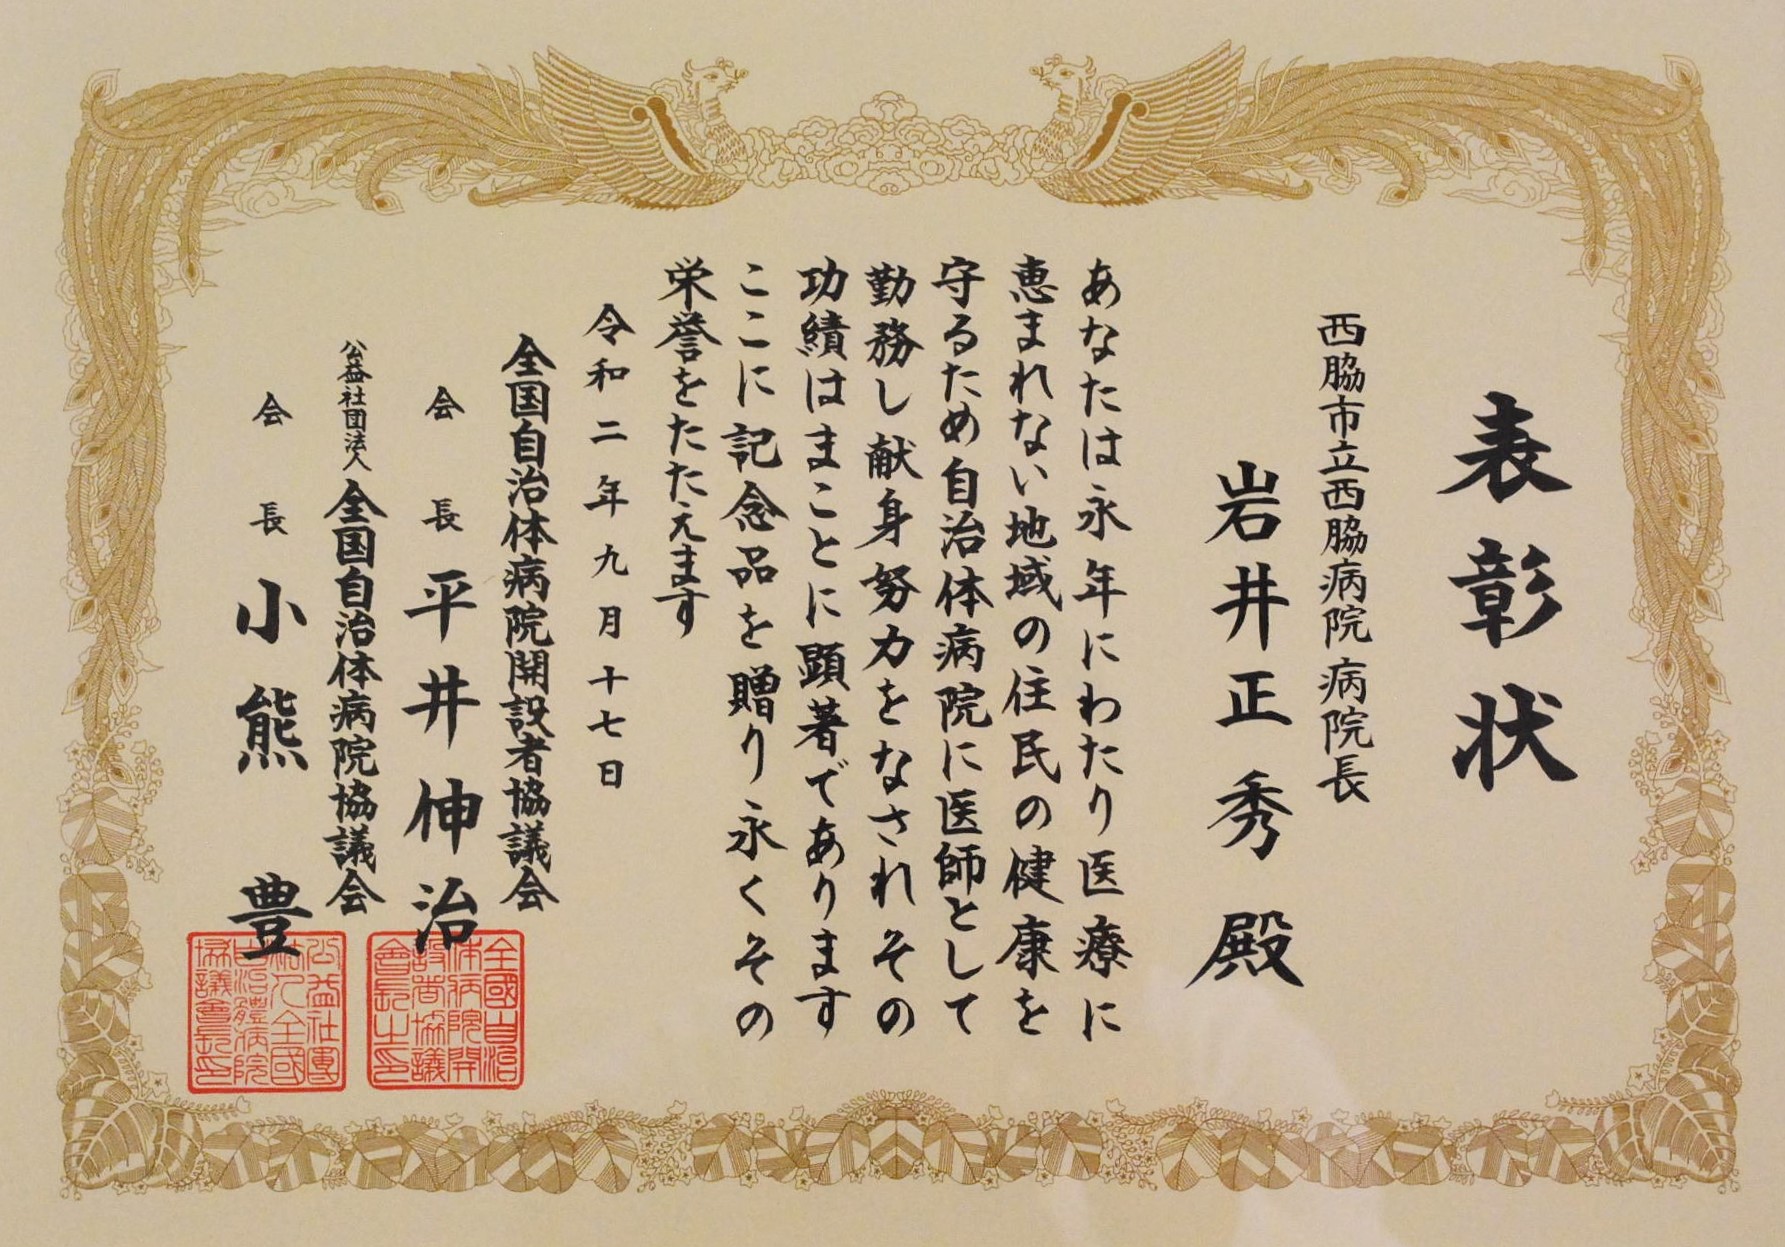 表彰状
西脇市立西脇病院 病院長
岩井正秀 殿
あなたは永年にわたり医療に
恵まれない地域の住民の健康を
守るため自治体病院に医師として
勤務し献身努力をなされその
功績はまことに顕著であります
ここに記念品を贈り永くその
栄誉をたたえます
令和二年九月十七日
全国自治体病院開設者協議会
会長 平井伸治
公益社団法人 全国自治体病院協議会
会長 小熊 豊
全國自治
体病院開
設者協議
會長之印
公益社團
法人全國
自治體病院
協議會長印